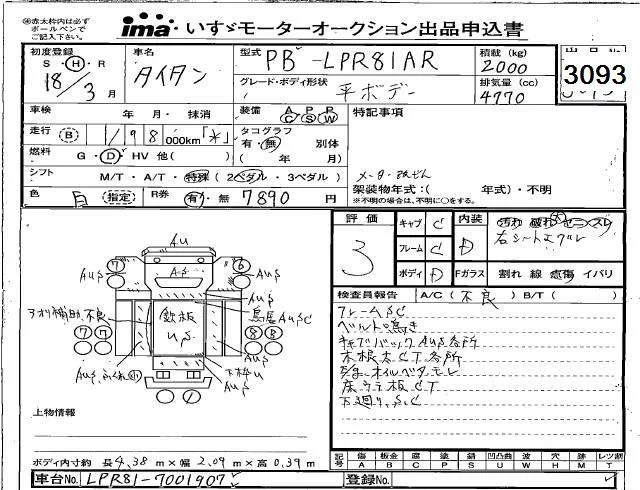 ※赤太枠内は必ず
ボールペンで
ご記入下さい。
ima いすゞモーターオークション出品申込書
初度登録 S・H・R 18/3月
車名 タイタン
型式 PB-LPR81AR
積載(kg) 2000
3093
グレード・ボディ形状 平ボデー
排気量(cc) 4770
車検 年 月・ 抹消
装備 A P R C S W
特記事項
走行 B 1/98 000km「*」
タコグラフ 有・無 別体 ( 年 月)
燃料 G・D・HV 他( )
シフト M/T・A/T・特殊(2ペダル・3ペダル)
メーター改ざん
架装物年式:( 年式)・不明
※不明の場合は、不明に○をする。
色 白 (指定) R券 有・無 7890円
評価 3
キャブ C
内装 D
フレーム C
ボディ D
Fガラス 割れ 線 飛傷 イバリ
右シート
検査員報告 A/C(不良) B/T( )
フレームSC
ベルト鳴き
キャブバックAUS各所
木根太CT各所
オイルベタモレ
床ウラ板CT
下廻り.S.C
AU
A-S
AUS
AUS
アオリ補助不良
鉄板
US
鳥居AUSC
AUS
AUS
下枠U
AUS
7
6
7 7
8 8
1
上物情報
ボディ内寸約 長4.38m×幅2.09m×高0.39m
記号 傷A 板金B 腐C 塗P 錆S 凹凸曲U 波W 穴H 跡M レンズ割
車台No. LPR81-7001907
登録No.